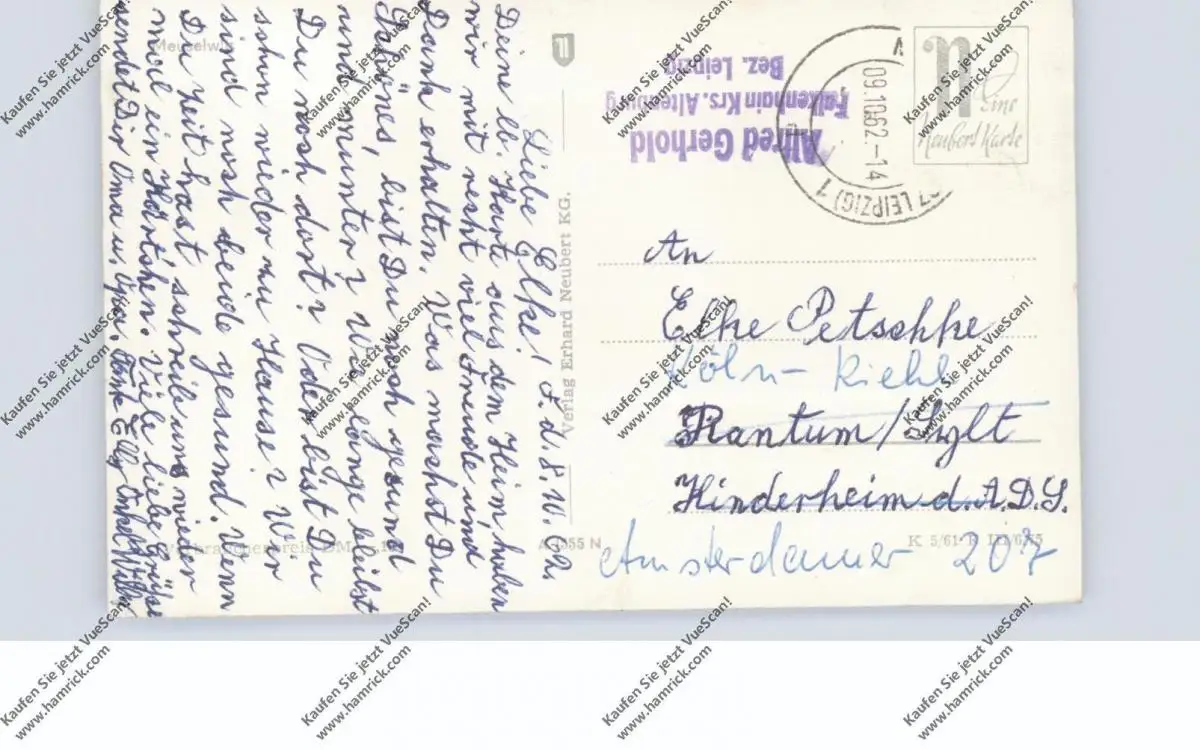 Meuselwitz
Liebe Elke! F. d. 8. 10. 62.
Deine lb. Karte aus dem Heim haben
wir mit recht viel Freude und
Dank erhalten. Was machst Du
Schönes, bist Du noch gesund
und munter? Wie lange bleibst
Du noch dort? Oder bist Du
schon wieder zu Hause? Wir
sind noch beide gesund. Wenn
Du Zeit hast, schreib uns wieder
mal ein Kärtchen. Viele liebe Grüße
sendet Dir Oma u. Opa. Tante Elly Onkel Willy
Verbraucherpreis DM
A 1955 N
Verlag Erhard Neubert KG.
Alfred Gerhold
Falkenhain Krs. Altenburg
Bez. Leipzig
09.10.62.-14
LEIPZIG) 1
Eine
Neubert Karte
An
Elke Petschke
Köln - Riehl
Rantum/Sylt
Kinderheim d. A.D.S.
Amsterdamer 207
K 5/61
Kaufen Sie jetzt VueScan!
www.hamrick.com